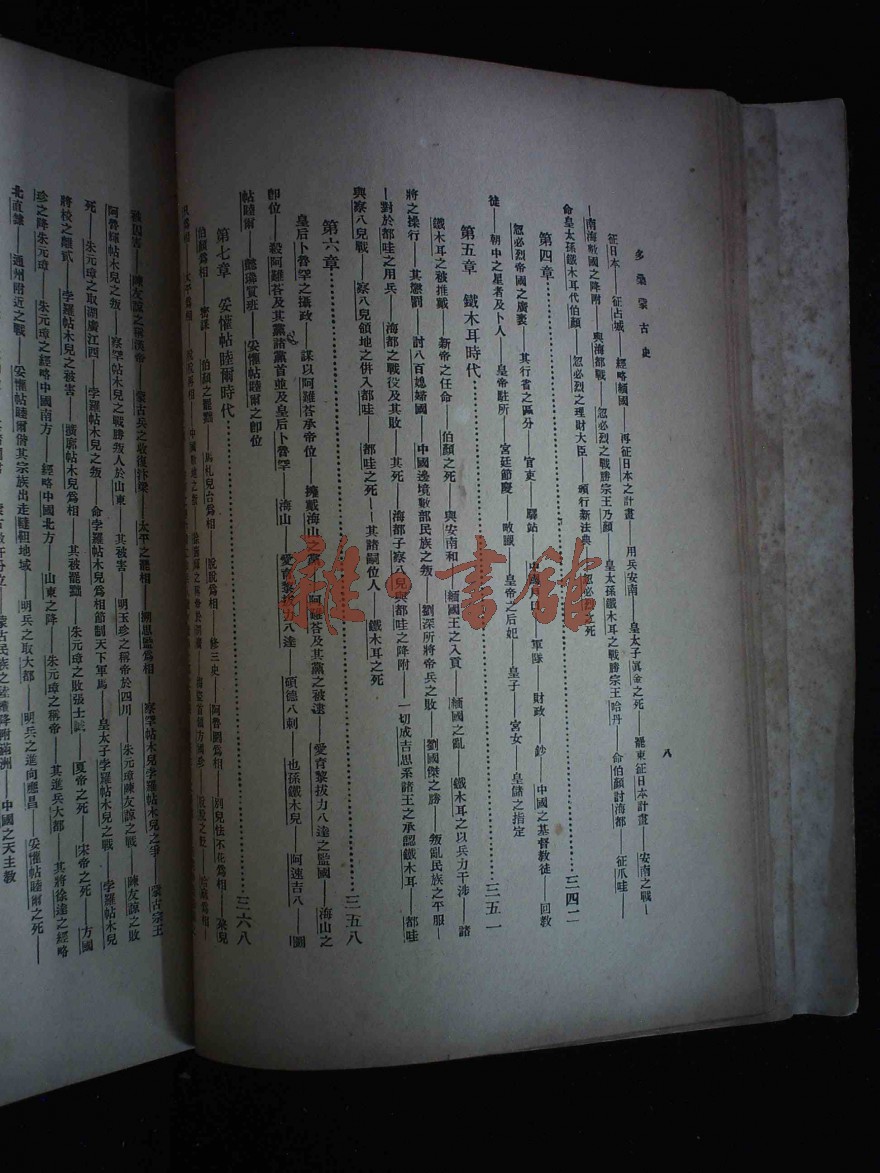 多桑蒙古史
八
征日本 征占城 經略緬國 再征日本之計畫 用兵安南——皇太子眞金之死——罷東征日本計畫——安南之戰——
——南海數國之降附 與海都戰——忽必烈之戰勝宗王乃顏 皇太孫鐵木耳之戰勝宗王哈丹 命伯顏討海都 征爪哇——
命皇太孫鐵木耳代伯顏 忽必烈之理財大臣——頒行新法典 忽必烈之死
第四章……三四二
忽必烈帝國之廣袤 其行省之區分 官吏 驛站 中國戶口 軍隊 財政 鈔 中國之基督教徒——回教
徒——朝中之星者及卜人——皇帝駐所 宮廷節慶——畋獵 皇帝之后妃 皇子——宮女——皇儲之指定
第五章 鐵木耳時代……三五一
鐵木耳之被推戴 新帝之任命 伯顏之死——與安南和 緬國王之入貢 緬國之亂——鐵木耳之以兵力干涉——諸
將之操行——其懲罰——討八百媳婦國——中國邊境數部民族之叛——劉深所將帝兵之敗——劉國傑之勝——叛亂民族之平服——
——對於都哇之用兵——海都之戰役及其敗——其死——海都子察八兒與都哇之降附——一切成吉思系諸王之承認鐵木耳——都哇
與察八兒戰——察八兒領地之併入都哇 都哇之死——其諸嗣位人——鐵木耳之死
第六章……三五八
皇后卜魯罕之攝政——謀以阿難荅承帝位——擁戴海山之黨——阿難荅及其黨之被逮——愛育黎拔力八達之監國——海山之
卽位——殺阿難荅及其黨諸黨首並及皇后卜魯罕——海山——愛育黎拔力八達——碩德八剌——也孫鐵木兒——阿速吉八——圖
帖睦爾——懿璘質班——妥懽帖睦爾之卽位
第七章 妥懽帖睦爾時代……三六八
伯顏爲相 密謀 伯顏之罷黜——馬札兒台爲相——脫脫爲相——修三史——阿魯圖爲相——別兒怯不花爲相——朶兒
被陷害——陳友諒之稱漢帝——蒙古兵之收復汴梁——太平之罷相 搠思監爲相——察罕帖木兒孛羅帖木兒之爭——蒙古宗王
阿魯輝帖木兒之叛——察罕帖木兒之戰勝叛人於山東——其被害——明玉珍之稱帝於四川——朱元璋陳友諒之戰——陳友諒之敗
死——朱元璋之取湖廣江西——孛羅帖木兒之叛——命孛羅帖木兒爲相節制天下軍馬——皇太子孛羅帖木兒之戰——孛羅帖木兒
將校之離貳——孛羅帖木兒之被害——擴廓帖木兒爲相——其被罷黜——朱元璋之敗張士誠——夏帝之死——宋帝之死——方國
珍之降朱元璋——朱元璋之經略中國南方——經略中國北方——山東之降——朱元璋之稱帝——其進兵大都——其將徐達之經略
北直隸——通州附近之戰——妥懽帖睦爾偕其宗族出走韃靼地域——明兵之取大都——明兵之進向應昌——妥懽帖睦爾之死——
蒙古民族之陸續降附滿洲——中國之天主教
雜·書館